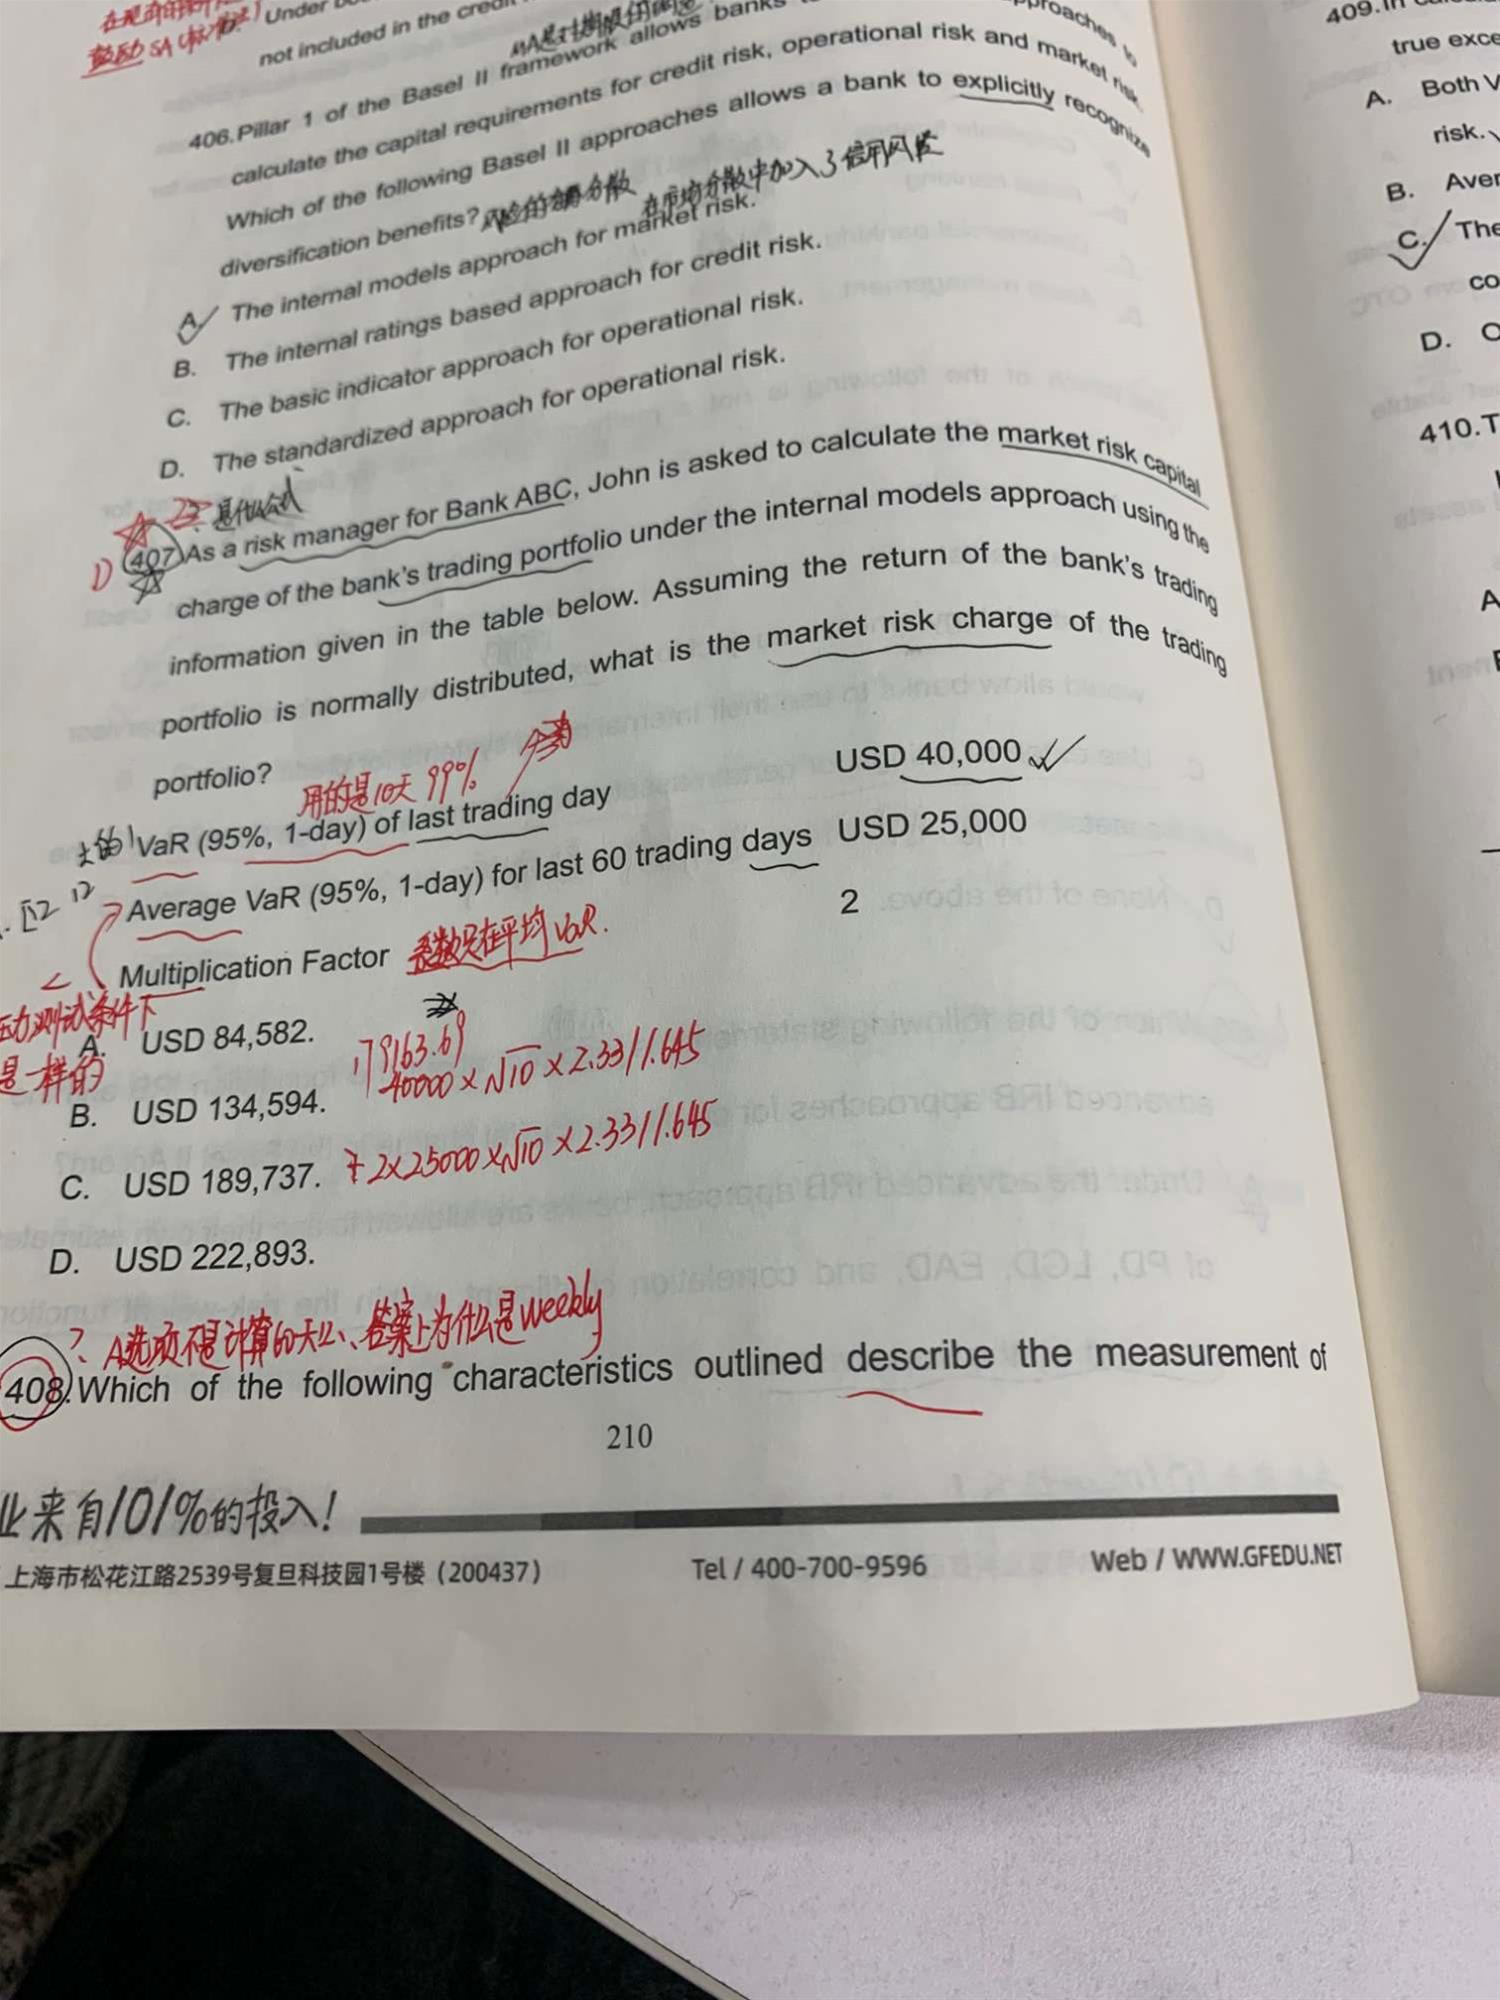 在
鼓励 SA (标准法)
Under
not included in the
406.Pillar 1 of the Basel II framework allows banks
proaches to
calculate the capital requirements for credit risk, operational risk and market risk.
Which of the following Basel II approaches allows a bank to explicitly recognize
diversification benefits?
在市场分散中加入了信用风险
A. The internal models approach for market risk.
B. The internal ratings based approach for credit risk.
C. The basic indicator approach for operational risk.
D. The standardized approach for operational risk.
D
407.As a risk manager for Bank ABC, John is asked to calculate the market risk capital
charge of the bank's trading portfolio under the internal models approach using the
information given in the table below. Assuming the return of the bank's trading
portfolio is normally distributed, what is the market risk charge of the trading
portfolio?
用的是10天 99%
VaR (95%, 1-day) of last trading day USD 40,000
Average VaR (95%, 1-day) for last 60 trading days USD 25,000
Multiplication Factor 2
系数只在平均 VaR.
压力测试条件下
是一样的
A. USD 84,582.
179163.69
40000×√10×2.33/1.645
B. USD 134,594.
C. USD 189,737.
+2×25000×√10×2.33/1.645
D. USD 222,893.
? A选项不是计算60天以、答案上为什么是weekly
408.Which of the following characteristics outlined describe the measurement of
210
业来自101%的投入!
上海市松花江路2539号复旦科技园1号楼（200437）
Tel / 400-700-9596
Web / WWW.GFEDU.NET
409.In
true exce
A. Both V
risk.
B. Aver
C. The
co
D.
410.T
A